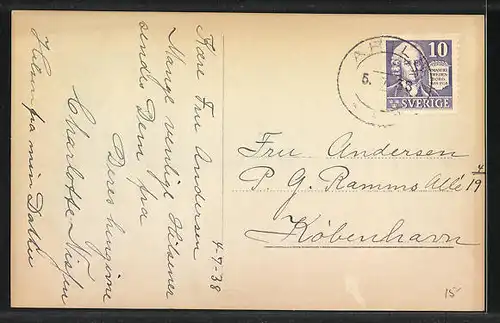 4-7-38
Kære Fru Andersen
Mange venlige Hilsener
sendes Dem fra
Deres hengivne
Charlotte
Hilsen fra min Datter
10
SVERIGE
Fru Andersen
P. G. Ramms Alle 19 4
København
15